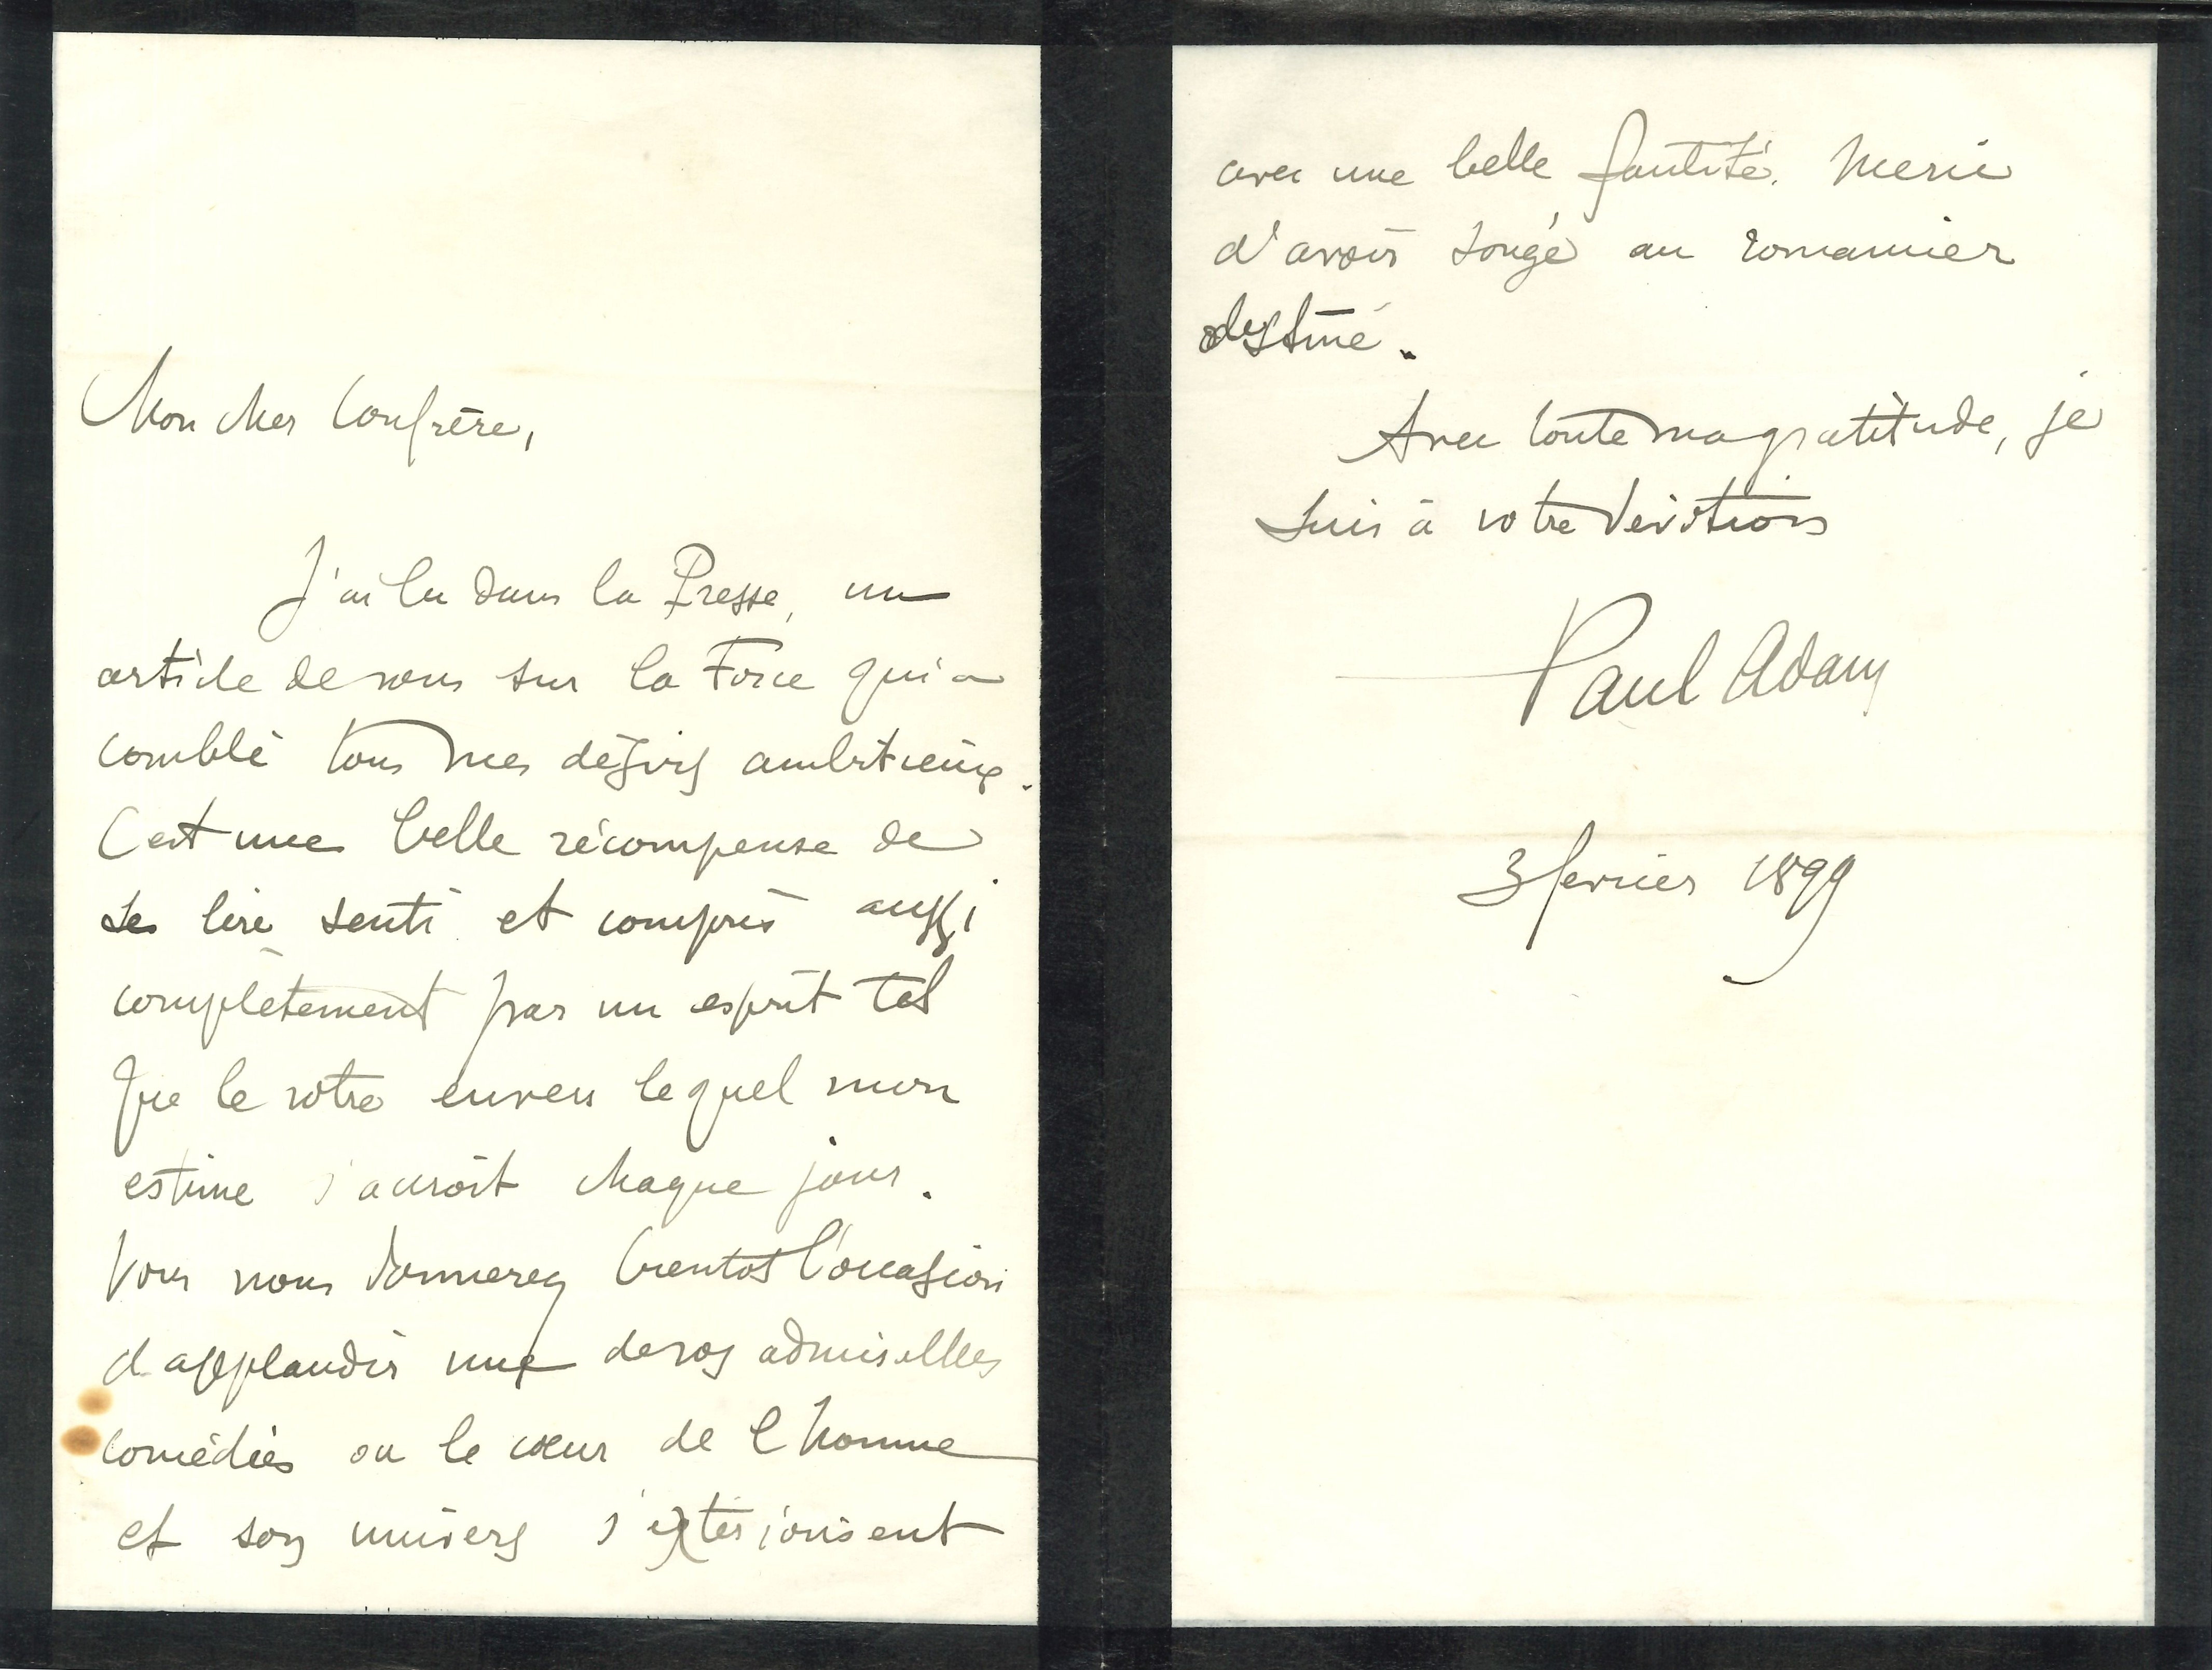 Mon cher Confrère,
J'ai lu dans la Presse, un
article de vous sur la Force qui a
comblé tous mes désirs ambitieux.
C'est une belle récompense de
se lire senti et compris aussi
complètement par un esprit tel
que le votre envers lequel mon
estime s'accroît chaque jour.
Vous nous donnerez bientot l'occasion
d'applaudir une de vos admirables
comédies ou le cœur de l'homme
et son univers s'extériorisent
avec une belle . Merci
d'avoir songé au romancier
.
Avec toute ma gratitude, je
suis à votre dévotion
Paul Adam
3 fevrier 1899